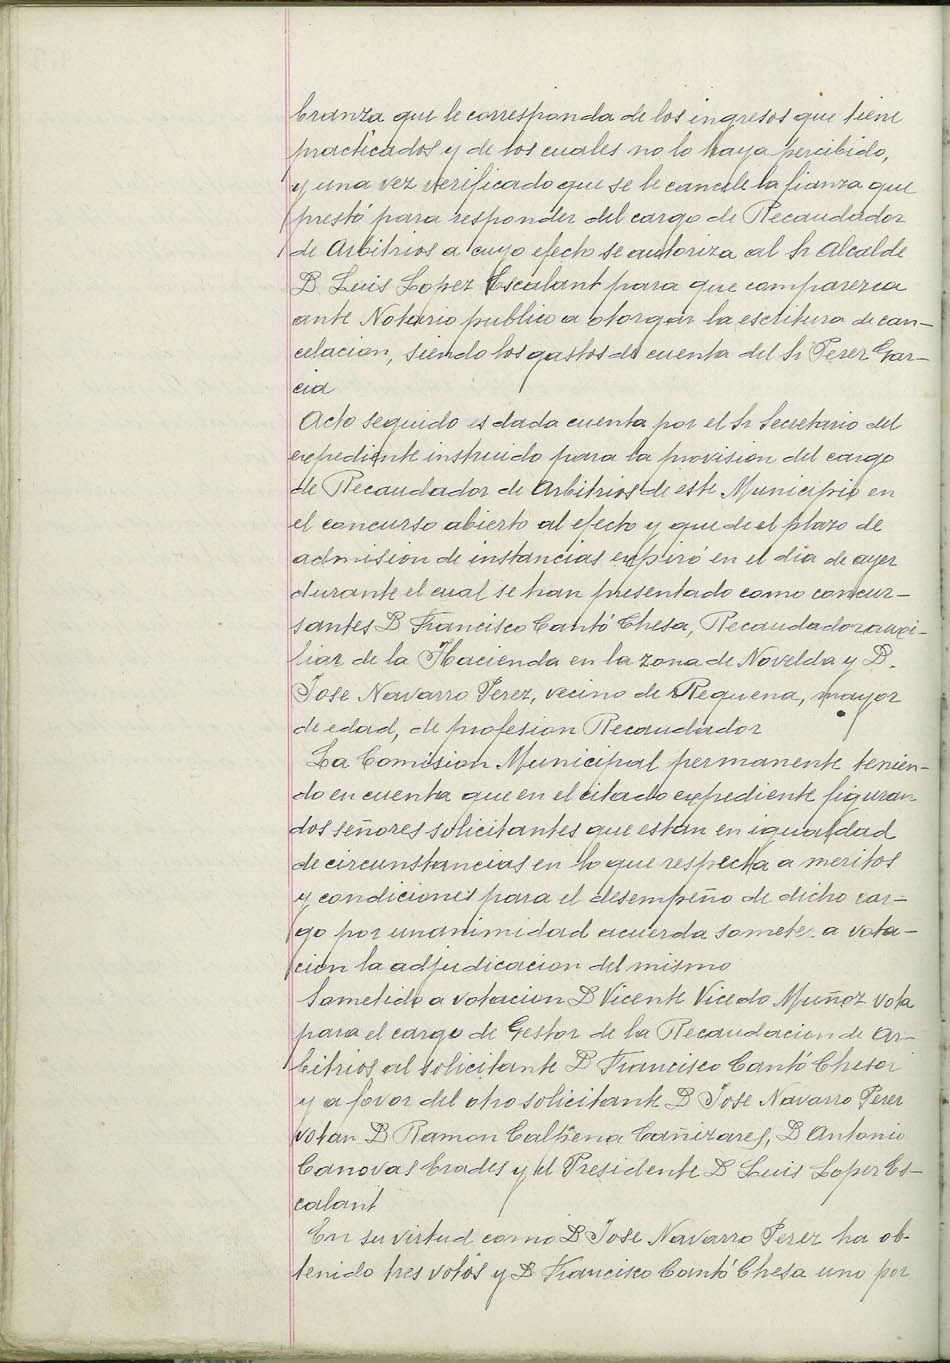 branza que le corresponda de los ingresos que tiene
practicados y de los cuales no lo haya percibido,
y una vez verificado que se le cancele la fianza que
prestó para responder del cargo de Recaudador
de Arbitrios a cuyo efecto se autoriza al Sr Alcalde
D Luis Lopez Escalant para que comparezca
ante Notario publico a otorgar la escritura de can-
celacion, siendo los gastos de cuenta del Sr Perez Gar-
cia
Acto seguido es dada cuenta por el Sr Secretario del
expediente instruido para la provision del cargo
de Recaudador de Arbitrios de este Municipio en
el concurso abierto al efecto y que de el plazo de
admision de instancias expiró en el dia de ayer
durante el cual se han presentado como concur-
santes D Francisco Cantó Chesa, Recaudador auxi-
liar de la Hacienda en la zona de Novelda y D.
Jose Navarro Perez, vecino de Requena, mayor
de edad, de profesion Recaudador
La Comision Municipal permanente tenien-
do en cuenta que en el citado expediente figuran
dos señores solicitantes que estan en igualdad
de circunstancias en lo que respecta a meritos
y condiciones para el desempeño de dicho car-
go por unanimidad acuerda someter a vota-
cion la adjudicacion del mismo
Sometido a votacion D Vicente Vicedo Muñoz vota
para el cargo de Gestor de la Recaudacion de Ar-
bitrios al solicitante D Francisco Cantó Chesa
y a favor del otro solicitante D Jose Navarro Perez
votan D Ramon Calpena Cañizares, D Antonio
Canovas Prades y el Presidente D Luis Lopez Es-
calant
En su virtud como D Jose Navarro Perez ha ob-
tenido tres votos y D Francisco Cantó Chesa uno por